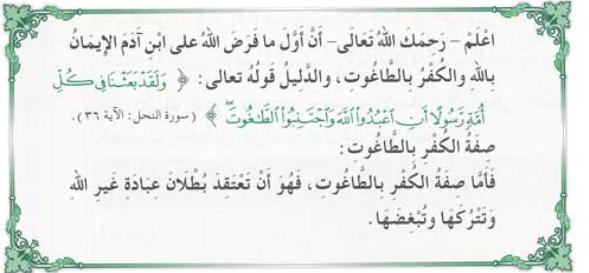 اعْلَمْ – رَحِمَكَ اللهُ تَعَالَى– أَنَّ أَوَّلَ ما فَرَضَ اللهُ على ابْنِ آدَمَ الإِيمَانُ
بِاللهِ والكُفْرُ بِالطَّاغُوتِ، والدَّلِيلُ قَولُهُ تعالى: ﴿ وَلَقَدْ بَعَثْنَا فِي كُلِّ
أُمَّةٍ رَّسُولًا أَنِ ٱعْبُدُواْ ٱللَّهَ وَٱجْتَنِبُواْ ٱلطَّٰغُوتَۖ ﴾ (سورة النحل: الآية ٣٦).
صِفَةُ الكُفْرِ بِالطَّاغُوتِ:
فَأَمَّا صِفَةُ الكُفْرِ بِالطَّاغُوتِ، فَهُوَ أَنْ تَعْتَقِدَ بُطْلَانَ عِبَادَةِ غَيرِ اللهِ
وَتَتْرُكَهَا وتُبْغِضَهَا.